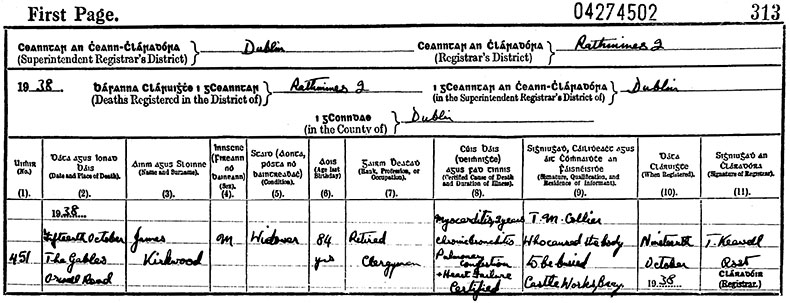 First Page.
04274502
313
Ceanntar an Ċeann-Ċláraḋóra
(Superintendent Registrar's District)
Dublin
Ceanntar an Ċláraḋóra
(Registrar's District)
Rathmines 2
1938.
Báranna Cláruiġṫe i gCeanntar
(Deaths Registered in the District of)
Rathmines 2
i gCeanntar an Ċeann-Ċláraḋóra
(in the Superintendent Registrar's District of)
Dublin
i gConndae
(in the County of)
Dublin
Uiṁir
(No.)
(1).
Dáta agus Ionad
Báis
(Date and Place of Death).
(2).
Ainm agus Sloinne
(Name and Surname).
(3).
Innscne
(Fireann
nó
Baineann)
(Sex).
(4).
Staid (Aonta,
pósta nó
baintreaḃaċ)
(Condition).
(5).
Aois
(Age last
Birthday)
(6).
Gairm Beaṫaḋ
(Rank, Profession, or
Occupation).
(7).
Cúis Báis
(Deiṁniġṫe)
agus faḋ tinnis
(Certified Cause of Death
and Duration of Illness).
(8).
Síġniuġaḋ, Cáilíḋeaċt agus
áit Ċóṁnaiṫe an
Fáisnéiste
(Signature, Qualification, and
Residence of Informant).
(9).
Dáta
Cláruiġṫe
(When Registered).
(10).
Síġniuġaḋ an
Ċláraḋóra
(Signature of Registrar).
(11).
451
1938
Fifteenth October
The Gables
Orwell Road
James
Kirkwood
M
Widower
84
yrs
Retired
Clergyman
Myocarditis 3 years
Chronic bronchitis
Pulmonary
Congestion
+ Heart Failure
Certified
T. M. Collier
Who caused the body
to be buried
Castle Works Bray.
Nineteenth
October
1938
T. Keavell
Asst
Cláraḋóir
(Registrar.)